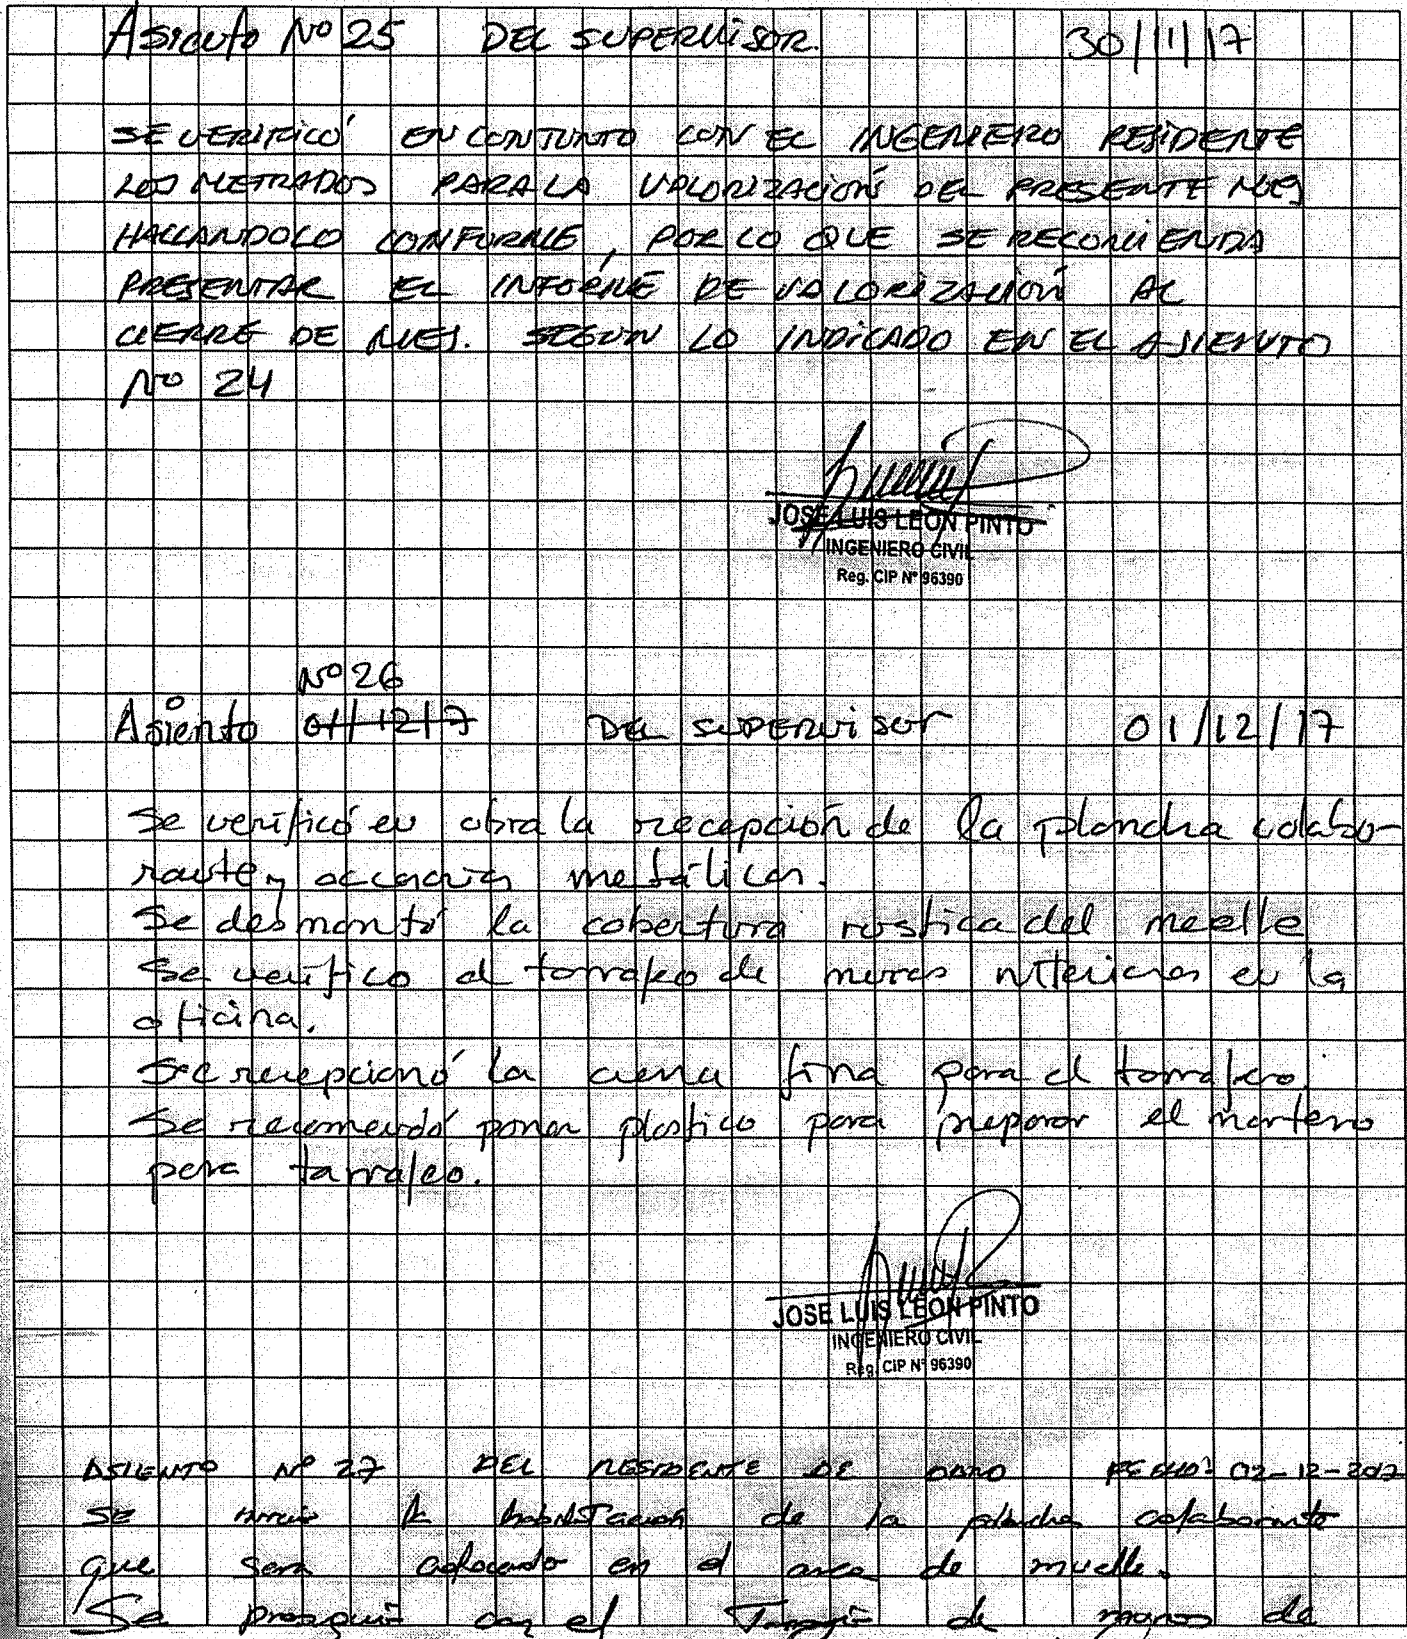 Asiento Nº 25 DEL SUPERVISOR. 30/11/17
SE VERIFICÓ EN CONJUNTO CON EL INGENIERO RESIDENTE
LOS METRADOS PARA LA VALORIZACIÓN DEL PRESENTE MES
HALLANDOLO CONFORME, POR LO QUE SE RECOMIENDA
PRESENTAR EL INFORME DE VALORIZACIÓN AL
CIERRE DE MES. SEGUN LO INDICADO EN EL ASIENTO
Nº 24
JOSE LUIS LEON PINTO
INGENIERO CIVIL
Reg. CIP Nº 96390
Nº 26
Asiento 01/12/17 DEL SUPERVISOR 01/12/17
Se verificó en obra la recepción de la plancha colabo-
rante y metálicas.
Se desmontó la cobertura rustica del muelle
Se verifico el tarrajeo de muros interiores en la
oficina.
Se recepcionó la arena fina para el tarrajeo.
Se recomendó poner plastico para preparar el mortero
para tarrajeo.
JOSE LUIS LEON PINTO
INGENIERO CIVIL
Reg. CIP Nº 96390
ASIENTO Nº 27 DEL RESIDENTE DE FECHA: 02-12-2017
SE la habilitación de la plancha colaborante
que sera colocado en el area de muelle.
Se con el de de